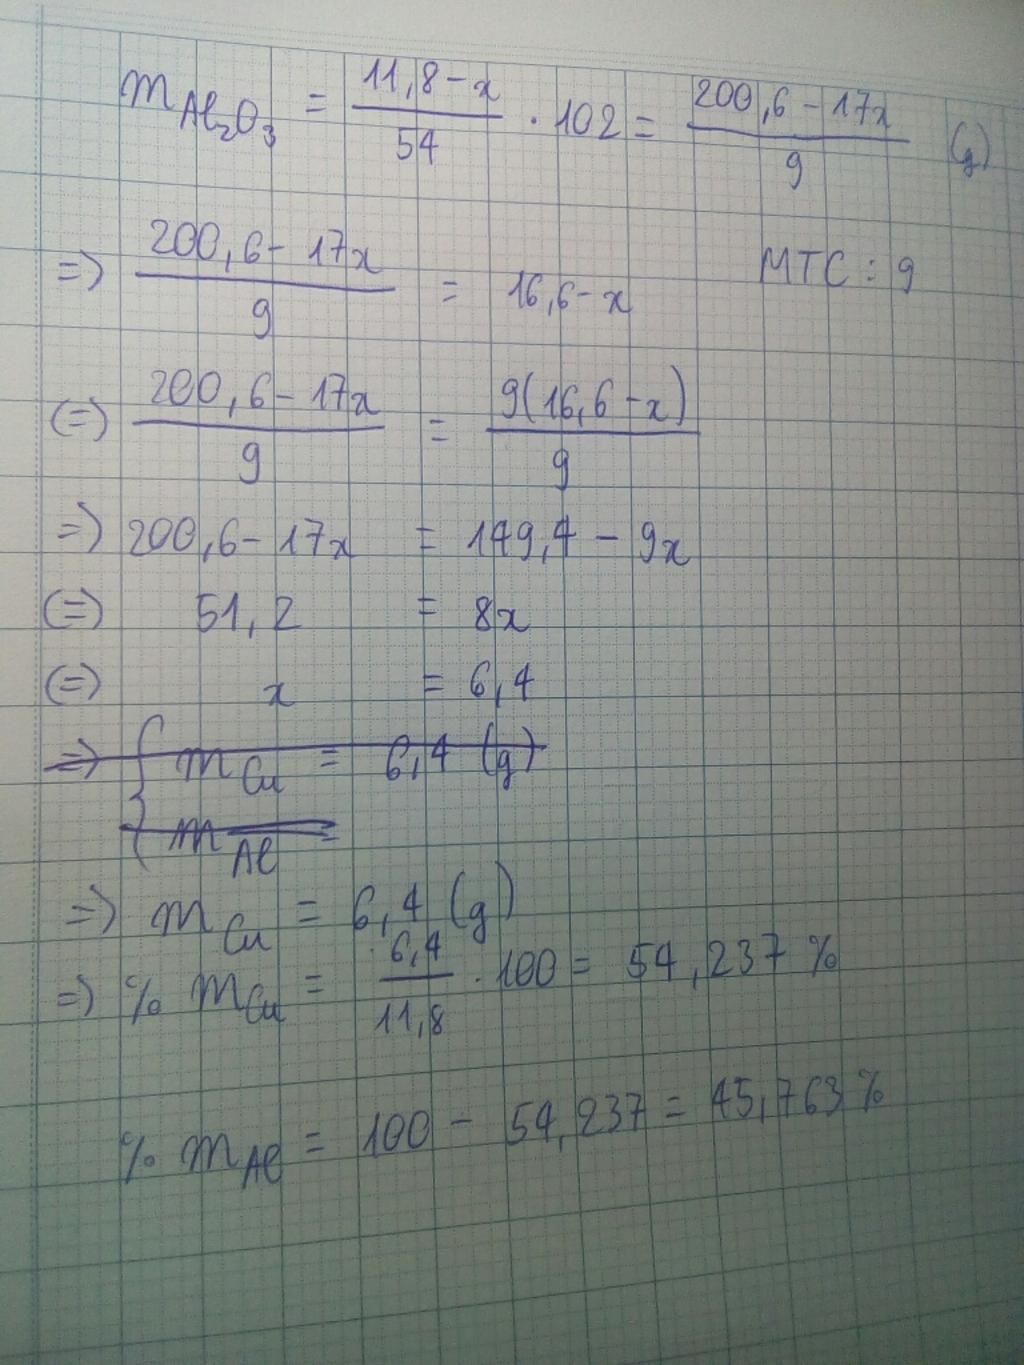 m Al₂O₃ = (11,8 - x)/54 . 102 = (200,6 - 17x)/9 (g)
=> (200,6 - 17x)/9 = 16,6 - x MTC : 9
(=) (200,6 - 17x)/9 = 9(16,6 - x)/9
=> 200,6 - 17x = 149,4 - 9x
(=) 51,2 = 8x
(=) x = 6,4
=> { m Cu = 6,4 (g)
m Al =
=> m Cu = 6,4 (g)
=> % m Cu = 6,4/11,8 . 100 = 54,237 %
% m Al = 100 - 54,237 = 45,763 %